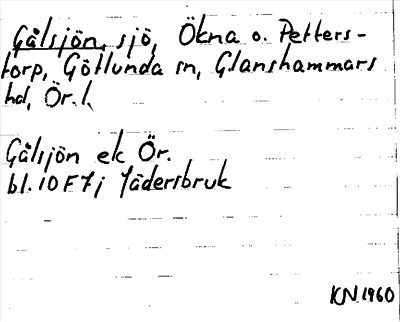 Gålsjön, sjö, Ökna o. Petters-
torp, Götlunda sn, Glanshammars
hd, Ör. l.
Gålsjön ek Ör.
bl. 10F7j Jädersbruk
KN 1960